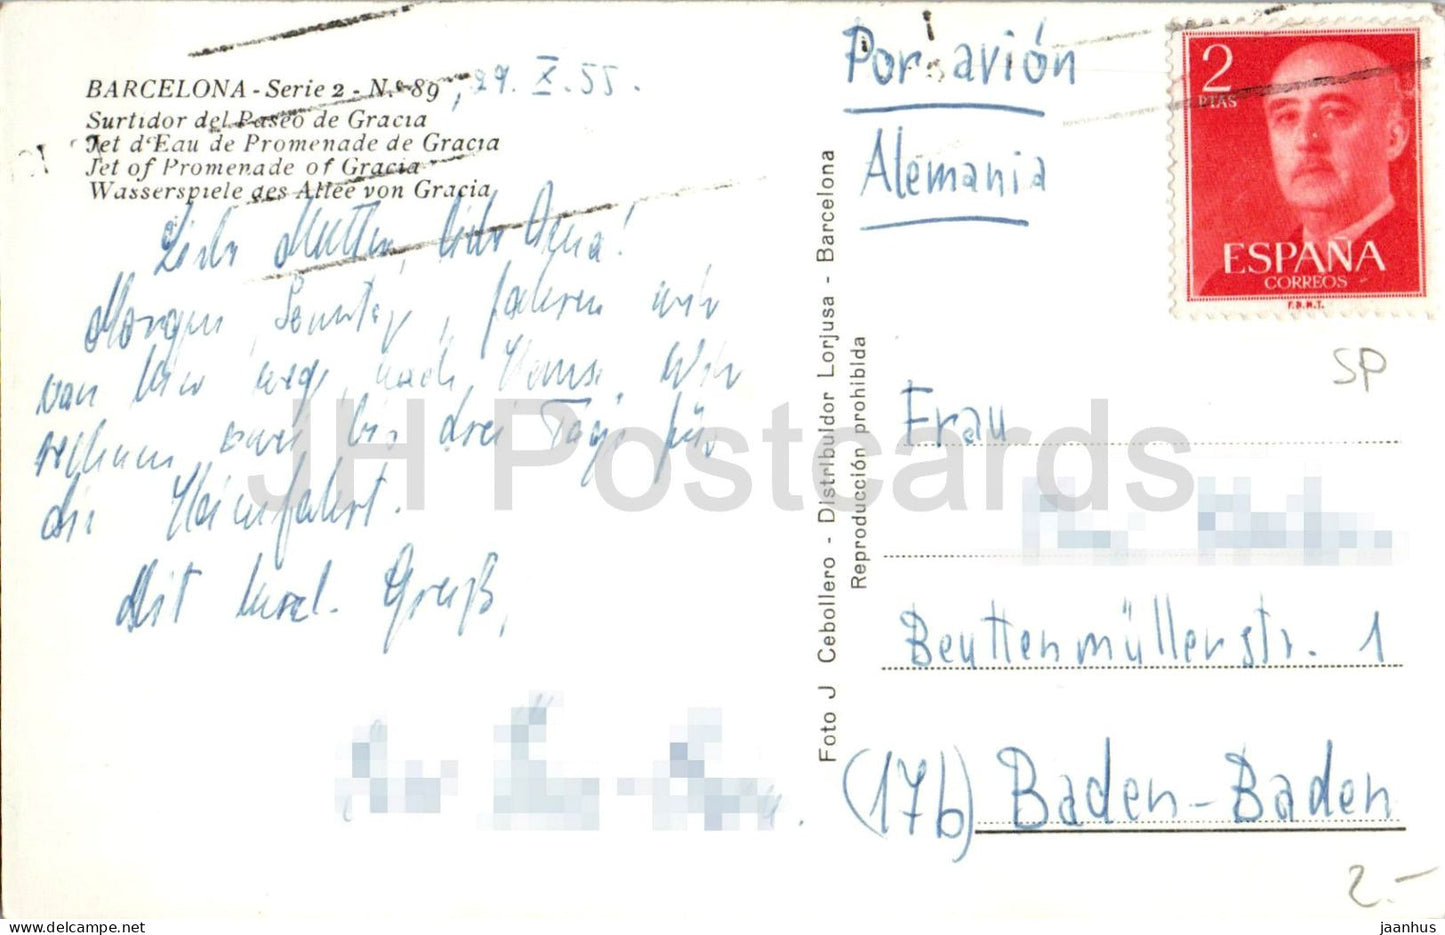 BARCELONA - Serie 2 - N.º 89
, 29. X. 55.
Surtidor del Paseo de Gracia
Jet d'Eau de Promenade de Gracia
Jet of Promenade of Gracia
Wasserspiele des Allee von Gracia
Liebe Mutter, liebe Anna!
Morgen, Sonntag, fahren wir
von hier weg, nach Hause. Wir
rechnen zwei bis drei Tage für
die Heimfahrt.
Mit herzl. Gruß,
Foto J Cebollero - Distribuidor Lorjusa - Barcelona
Reproducción prohibida
Por avión
Alemania
2
PTAS
ESPAÑA
CORREOS
F.N.M.T.
SP
Frau
Beuttenmüllerstr. 1
(17b) Baden-Baden
2.-
JH Postcards
jaanhus